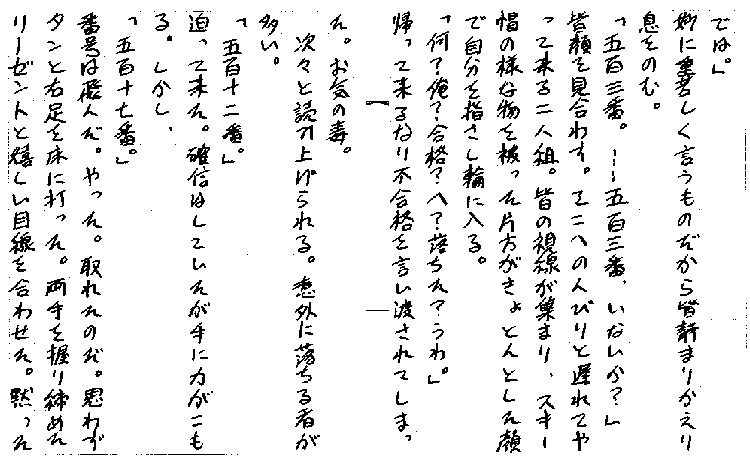 では。」
妙に重苦しく言うものだから皆静まりかえり
息をのむ。
「五百三番。――五百三番、いないか?」
皆顔を見合わす。そこへのんびりと遅れてや
って来る二人組。皆の視線が集まり、スキー
帽の様な物を被った片方がきょとんとした顔
で自分を指さし輪に入る。
「何?俺?合格?へ?落ちた?うわ」。
帰って来るなり不合格を言い渡されてしまっ
た。お気の毒。
次々と読み上げられる。意外に落ちる者が
多い。
「五百十二番。」
迫って来た。確信はしていたが手に力がこも
る。しかし、
「五百十七番。」
番号は飛んだ。やった。取れたのだ。思わず
タンと右足を床に打った。両手を握り締めた
リーゼントと嬉しい目線を合わせた。黙った